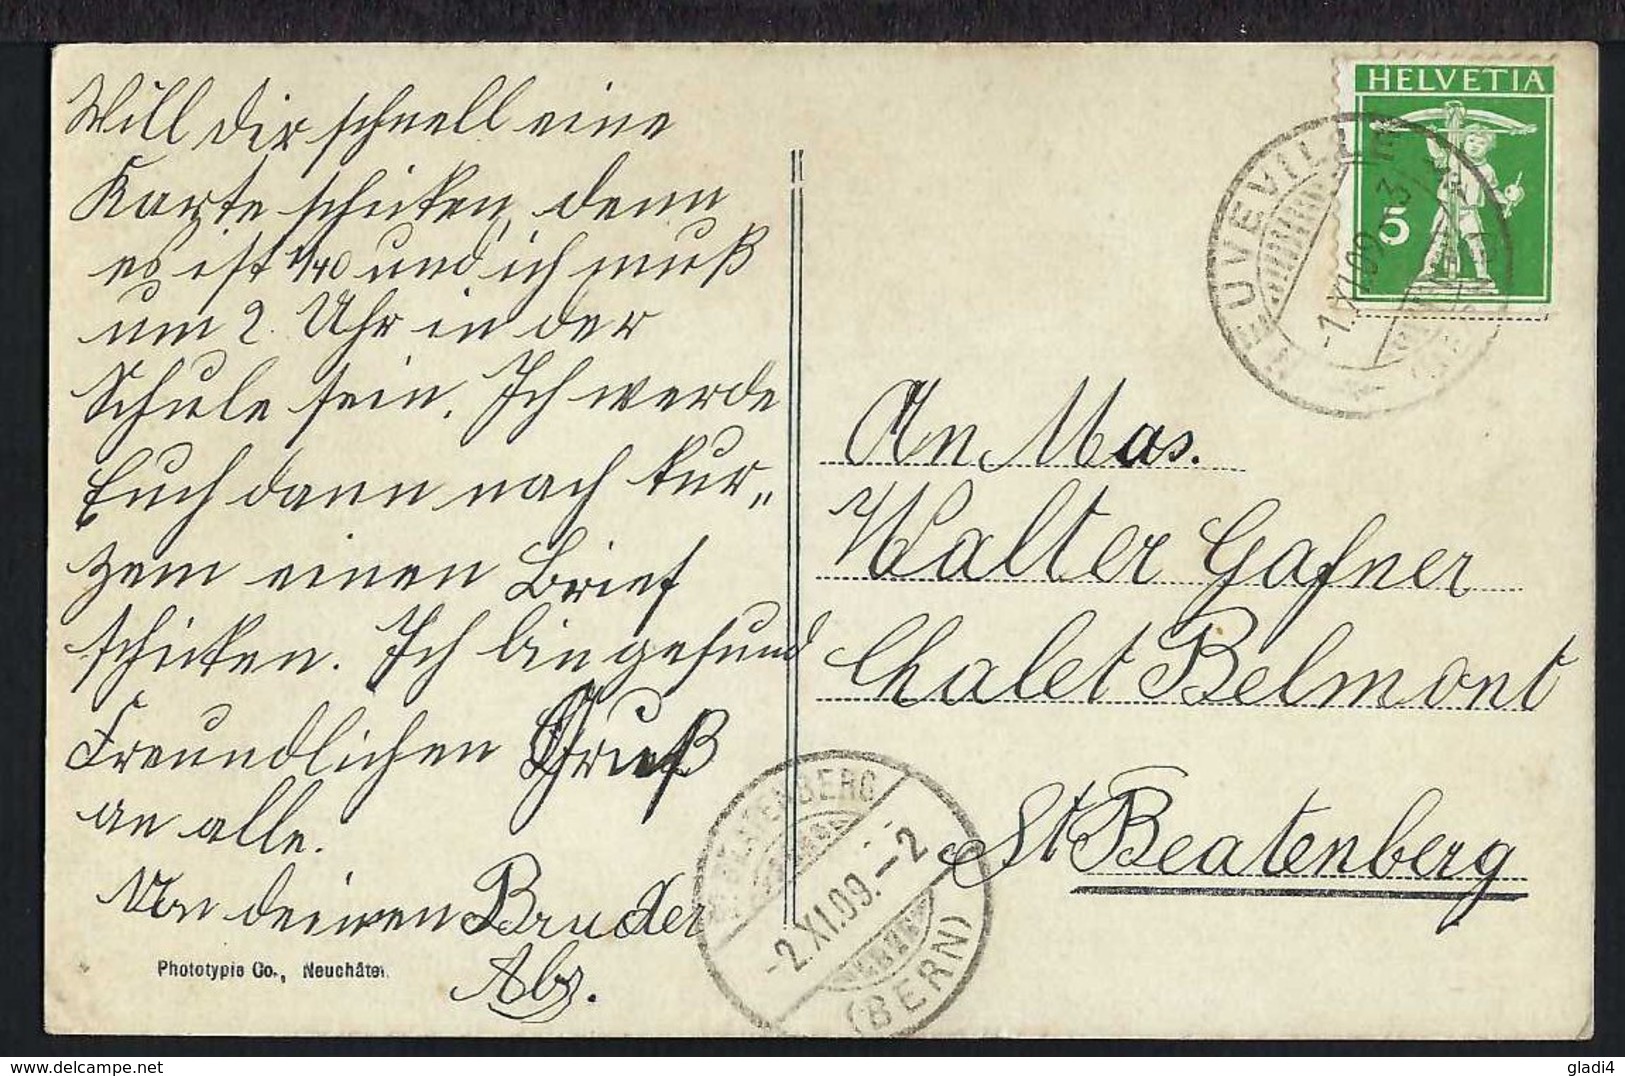 Will dir schnell eine
Karte schicken, denn
es ist 1/40 und ich muß
um 2. Uhr in der
Schule sein. Ich werde
Euch dann nach kur„
zem einen Brief
schicken. Ich bin gesund
Freundlichen Gruß
an alle.
Von deinen Bruder
Abs.
Phototypie Co., Neuchâtel
HELVETIA
5
NEUVEVILLE
-1.XI.09
An Mas.
Walter Gafner
Chalet Belmont
St Beatenberg
BEATENBERG
-2.XI.09.-2
(BERN)
gladi4